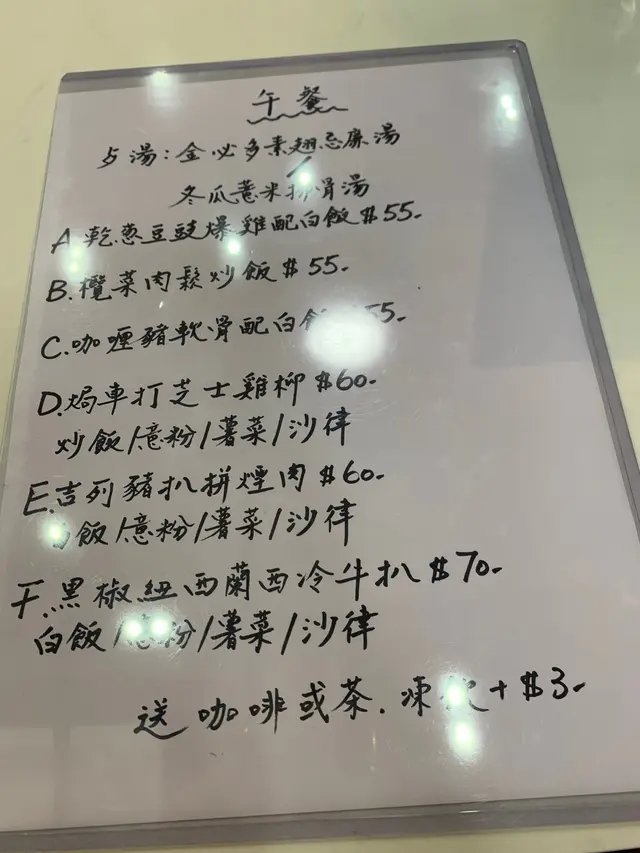 午餐
跟湯：金必多素翅忌廉湯
/
冬瓜薏米排骨湯
A.乾蔥豆豉爆雞配白飯$55.-
B.欖菜肉鬆炒飯$55-
C.咖喱豬軟骨配白飯 55-
D.焗車打芝士雞柳 $60-
炒飯/意粉/薯菜/沙律
E.吉列豬扒拼煙肉$60-
白飯/意粉/薯菜/沙律
F.黑椒紐西蘭西冷牛扒$70-
白飯/意粉/薯菜/沙律
送咖啡或茶.凍飲+$3-